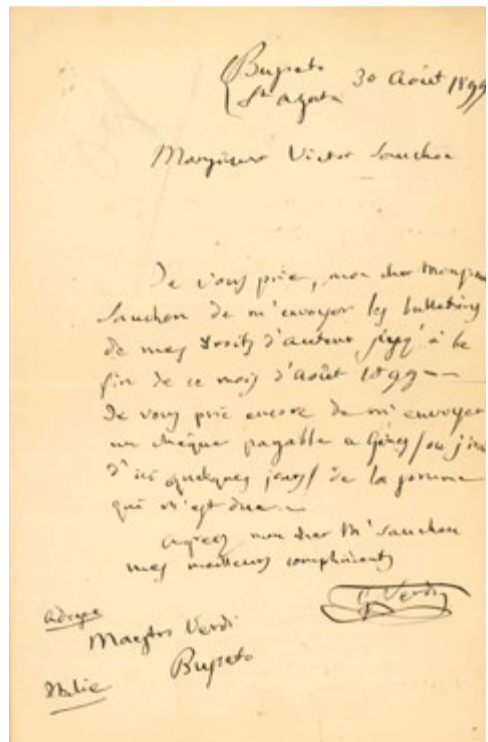 Busseto
St Agata
30 Août 1899
Monsieur Victor Souchon
Je vous prie, mon cher Monsieur
Souchon de m'envoyer les bulletins
de mes Droits d'auteur jusqu'à la
fin de ce mois d'Août 1899—
Je vous prie encore de m'envoyer
un chèque payable a Gênes / ou j'irai
d'ici quelques jours / de la somme
qui m'est due.—
Agréez mon cher Mr Souchon
mes meilleurs compliments
G Verdi
adresse
Maestro Verdi
Busseto
Italie